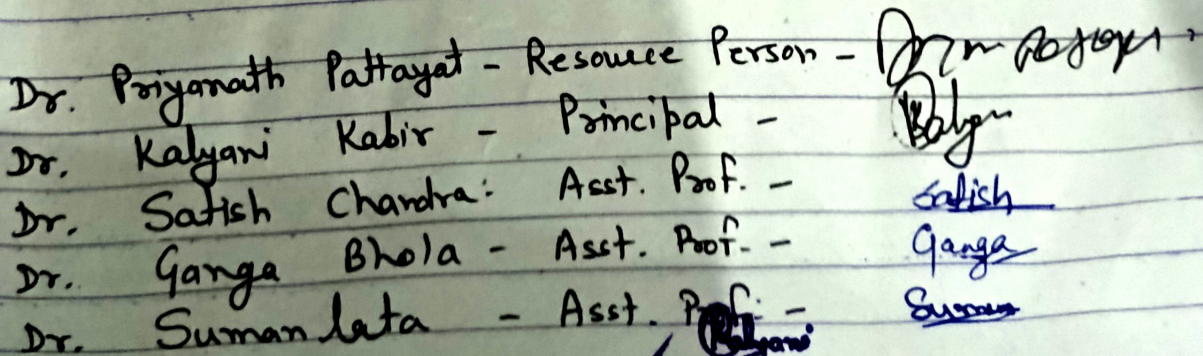 Dr. Priyanath Pattayat - Resource Person -
Dr. Kalyani Kabir - Principal -
Dr. Satish Chandra: Asst. Prof. - Satish
Dr. Ganga Bhola - Asst. Prof. - Ganga
Dr. Suman lata - Asst. Prof. - Suman
Kalyani